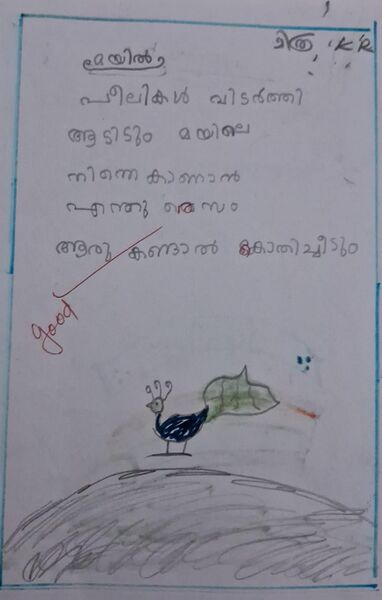 ചിത്ര . K R
മയിൽ
പീലികൾ വിടർത്തി
ആടിടും മയിലെ
നിന്നെ കാണാൻ
എന്തു രസം
ആരു കണ്ടാൽ കൊതിച്ചീടും
good